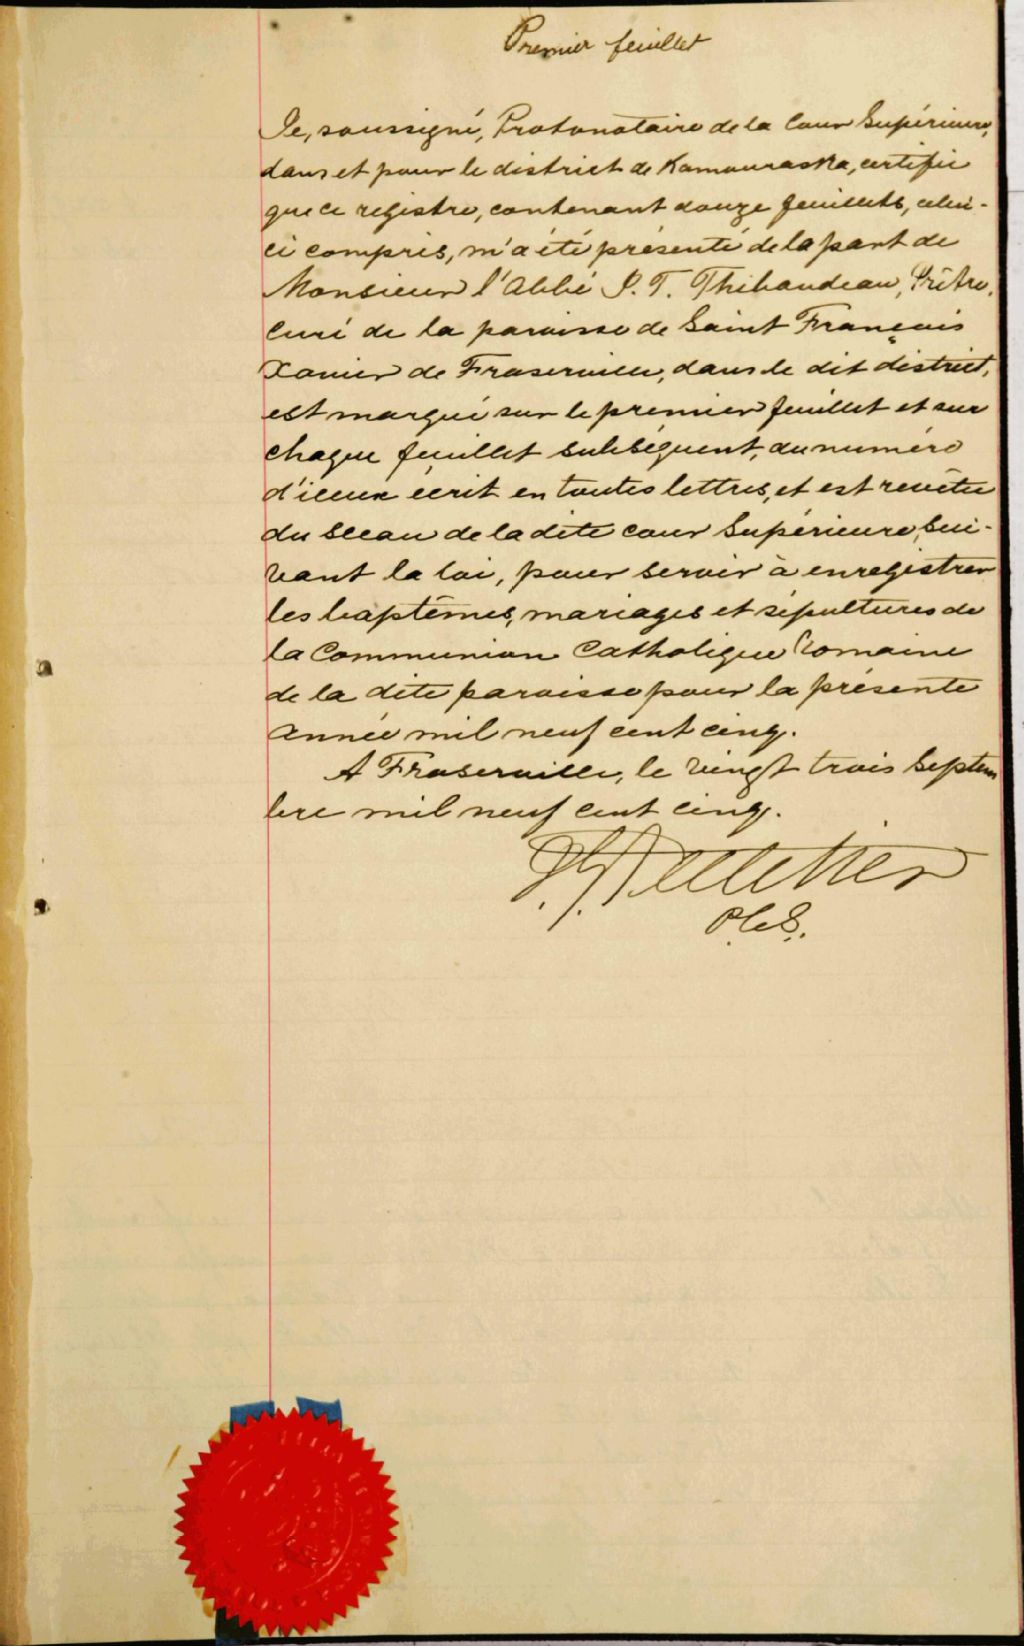 Premier feuillet
Je, soussigné, Protonotaire de la Cour Supérieure,
dans et pour le district de Kamouraska, certifie
que ce registre, contenant douze feuillets, celui-
ci compris, m'a été présenté de la part de
Monsieur l'Abbé J. T. Thibaudeau, Prêtre,
Curé de la paroisse de Saint François
Xavier de Fraserville, dans le dit district,
est marqué sur le premier feuillet et sur
chaque feuillet subséquent, du numéro
d'iceux écrit en toutes lettres, et est revêtu
du sceau de la dite cour Supérieure, sui-
vant la loi, pour servir à enregistrer
les baptêmes, mariages et sépultures de
la Communion Catholique Romaine
de la dite paroisse pour la présente
année mil neuf cent cinq.
A Fraserville, le vingt trois Septem
bre mil neuf cent cinq.
Pelletier
P.C.S.